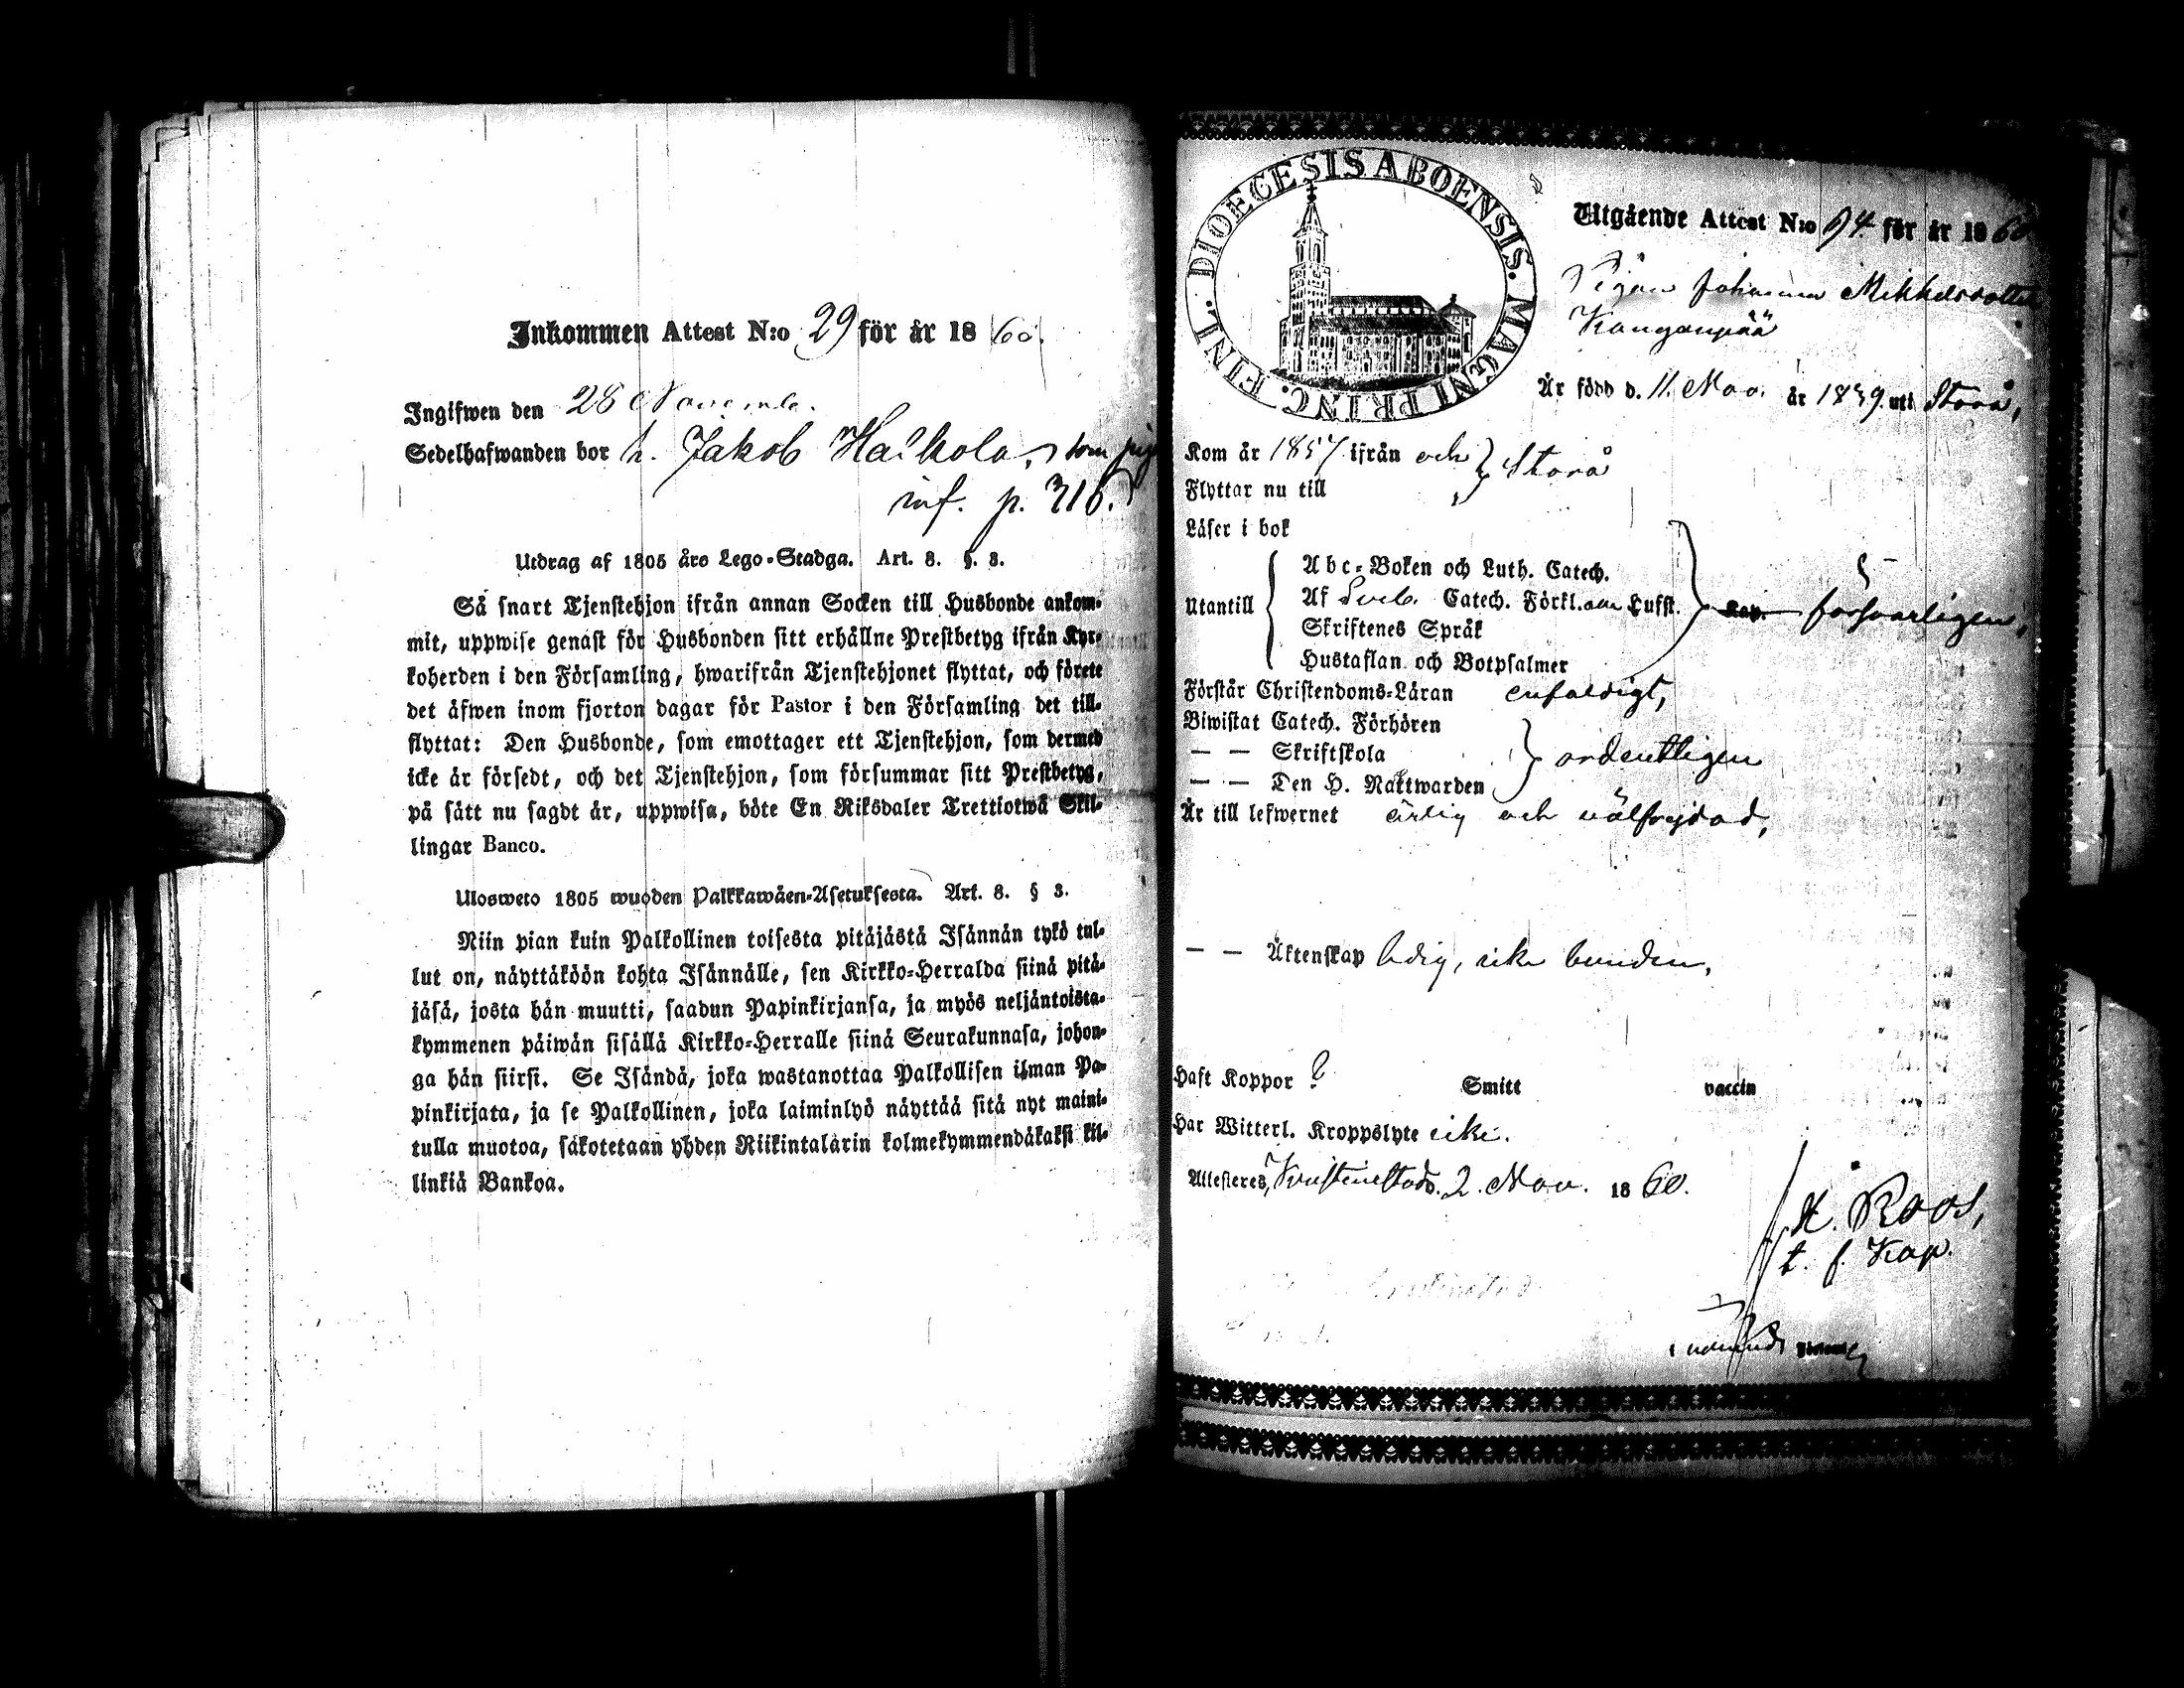 Inkommen Attest N:o 29 för år 1860.
Ingifwen den 28 Novemb.
Sedelhafwanden bor h. Jakob Haikola, som piga
inf. p. 316.
Utdrag af 1805 års Lego-Stadga. Art. 8. §. 3.
Så snart Tjenstehjon ifrån annan Socken till Husbonde ankom-
mit, uppwise genast för Husbonden sitt erhållne Prestbetyg ifrån Kyr-
koherden i den Församling, hwarifrån Tjenstehjonet flyttat, och förete
det äfwen inom fjorton dagar för Pastor i den Församling det till-
flyttat: Den Husbonde, som emottager ett Tjenstehjon, som dermed
icke är försedt, och det Tjenstehjon, som försummar sitt Prestbetyg,
på sätt nu sagdt är, uppwisa, böte En Riksdaler Trettiotwå Skil-
lingar Banco.
Ulosweto 1805 wuoden Palkkawäen-Asetuksesta. Art. 8. § 3.
Niin pian kuin Palkollinen toisesta pitäjästä Isännän tykö tul-
lut on, näyttäköön kohta Isännälle, sen Kirkko-Herralda siinä pitä-
jäsä, josta hän muutti, saadun Papinkirjansa, ja myös neljäntoista-
kymmenen päiwän sisällä Kirkko-Herralle siinä Seurakunnasa, johon-
ga hän siirsi. Se Isändä, joka wastanottaa Palkollisen ilman Pa-
pinkirjata, ja se Palkollinen, joka laiminlyö näyttää sitä nyt maini-
tulla muotoa, säkotetaan yhden Riikintalarin kolmekymmendäkaksi kil-
linkiä Bankoa.
DIOECESIS ABOENSIS. MAGNI PRINC. FINL.
Utgående Attest N:o 94 för år 1860
Pigan Johanna Mikkelsdotter
Kanganpää
Är född d. 11. Nov. år 1839. uti Storå,
Kom år 1857 ifrån och } Storå
Flyttar nu till
Läser i bok
Abc-Boken och Luth. Catech.
Utantill { Af Sveb. Catech. Förkl. Hufst. } försvarligen,
Skriftenes Språk
Hustaflan och Botpsalmer
Förstår Christendoms-Läran enfaldigt,
Biwistat Catech. Förhören
— — Skriftskola } ordentligen
— — Den H. Nattwarden
Är till lefwernet ärlig och välfrejdad,
— — Äktenskap ledig, icke bunden,
Haft Koppor ? Smitt vaccin
Har Witterl. Kroppslyte icke.
Attesteres, Kristinestad. 2. Nov. 1860.
K. Roos,
t. f. Kap.